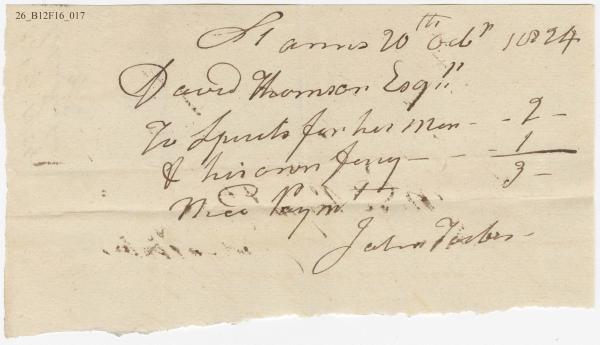 26_B12F16_017
St anns 20th Octr 1824
David Thomson Esqr
To Spirits for his Men - - 2 -
& his own ferry - - - 1
3 -
Recd Paymt
John Forbes